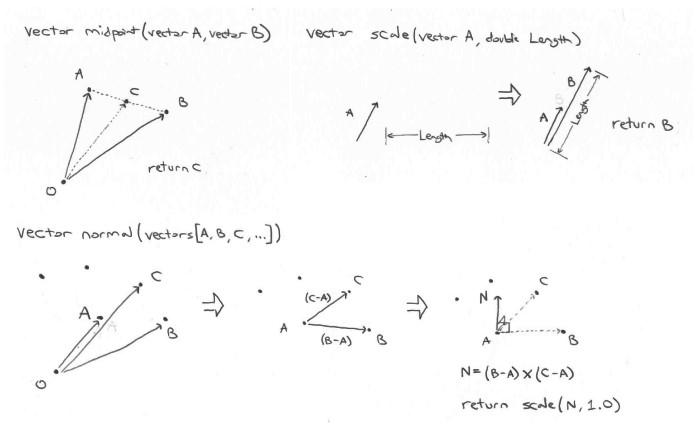 vector midpoint(vector A, vector B)
A
C
B
return C
O
vector scale(vector A, double Length)
A
Length
⇒
B
A
Length
return B
vector normal(vectors[A, B, C, ...])
C
A
B
O
⇒
C
(C-A)
A
(B-A)
B
⇒
C
N
A
B
N=(B-A)×(C-A)
return scale(N, 1.0)